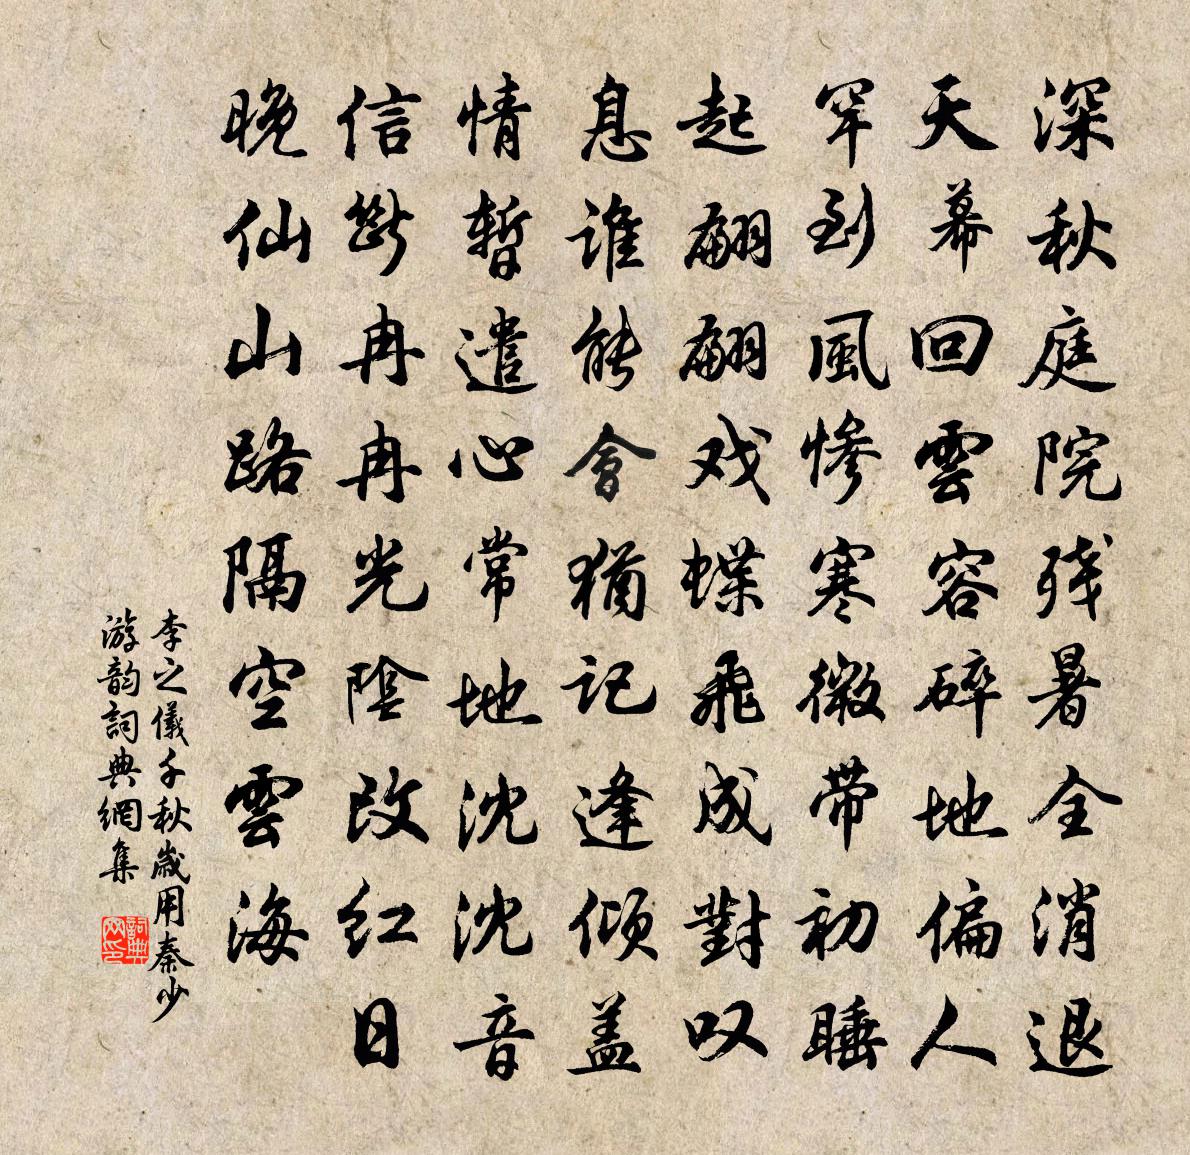 深秋庭院残暑全消退
天幕回雲容碎地偏人
罕到風慘寒微带初睡
起翩翩戏蝶飛成對叹
息誰能會猶记逢傾盖
情暫遣心常地沈沈音
信斷冉冉光陰改红日
晚仙山路隔空雲海
李之儀千秋歲用秦少
游韵詞典網集
詞典